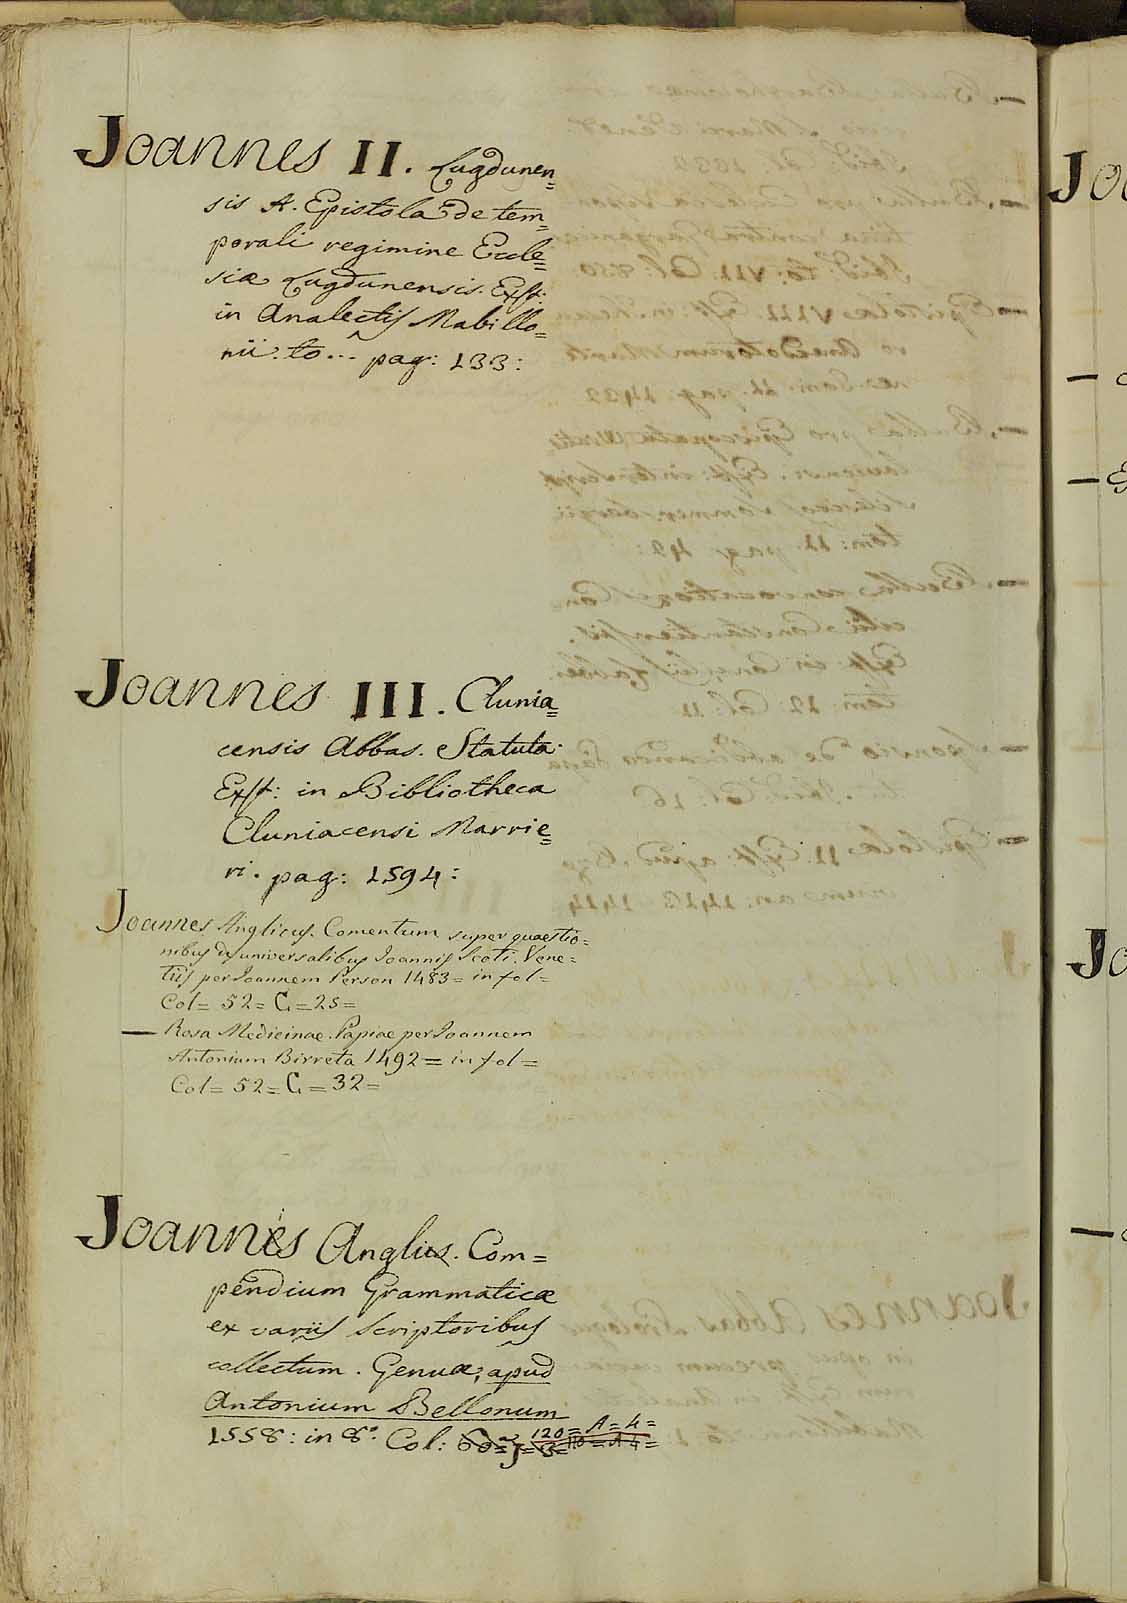 Joannes II. Lugdunen=
sis A. Epistola de tem=
porali regimine Eccle=
siæ Lugdunensis. Exst:
in Analectis Mabillo=
nii. to... pag: 133:
Joannes III. Clunia=
censis Abbas. Statuta.
Exst: in Bibliotheca
Cluniacensi Marrie=
ri. pag: 1594:
Joannes Anglicus. Comentum super quaestio=
nibus de universalibus Joannis Scoti. Vene=
tiis per Joannem Person 1483= in fol=
Col= 52= C=25=
— Rosa Medicinae. Papiae per Joannem
Antonium Birreta 1492= in fol=
Col= 52= C= 32=
Joannes Anglius. Com=
pendium Grammaticæ
ex variis Scriptoribus
collectum. Genuæ, apud
Antonium Bellonum
1558: in 8º Col: 120= A= 4=
Jo
—
—
Jo
—